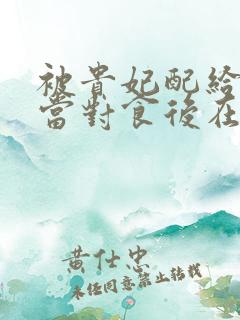 被貴妃配給
當對食後在
黃仕忠
未經同意禁止轉載